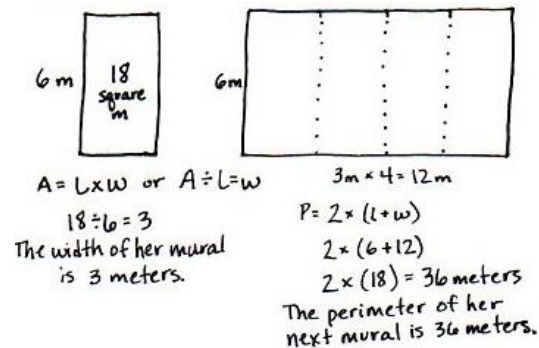 6 m
18
square
m
A = L x w or A ÷ L = w
18 ÷ 6 = 3
The width of her mural
is 3 meters.
6m
3m x 4 = 12m
P = 2 x (l + w)
2 x (6 + 12)
2 x (18) = 36 meters
The perimeter of her
next mural is 36 meters.